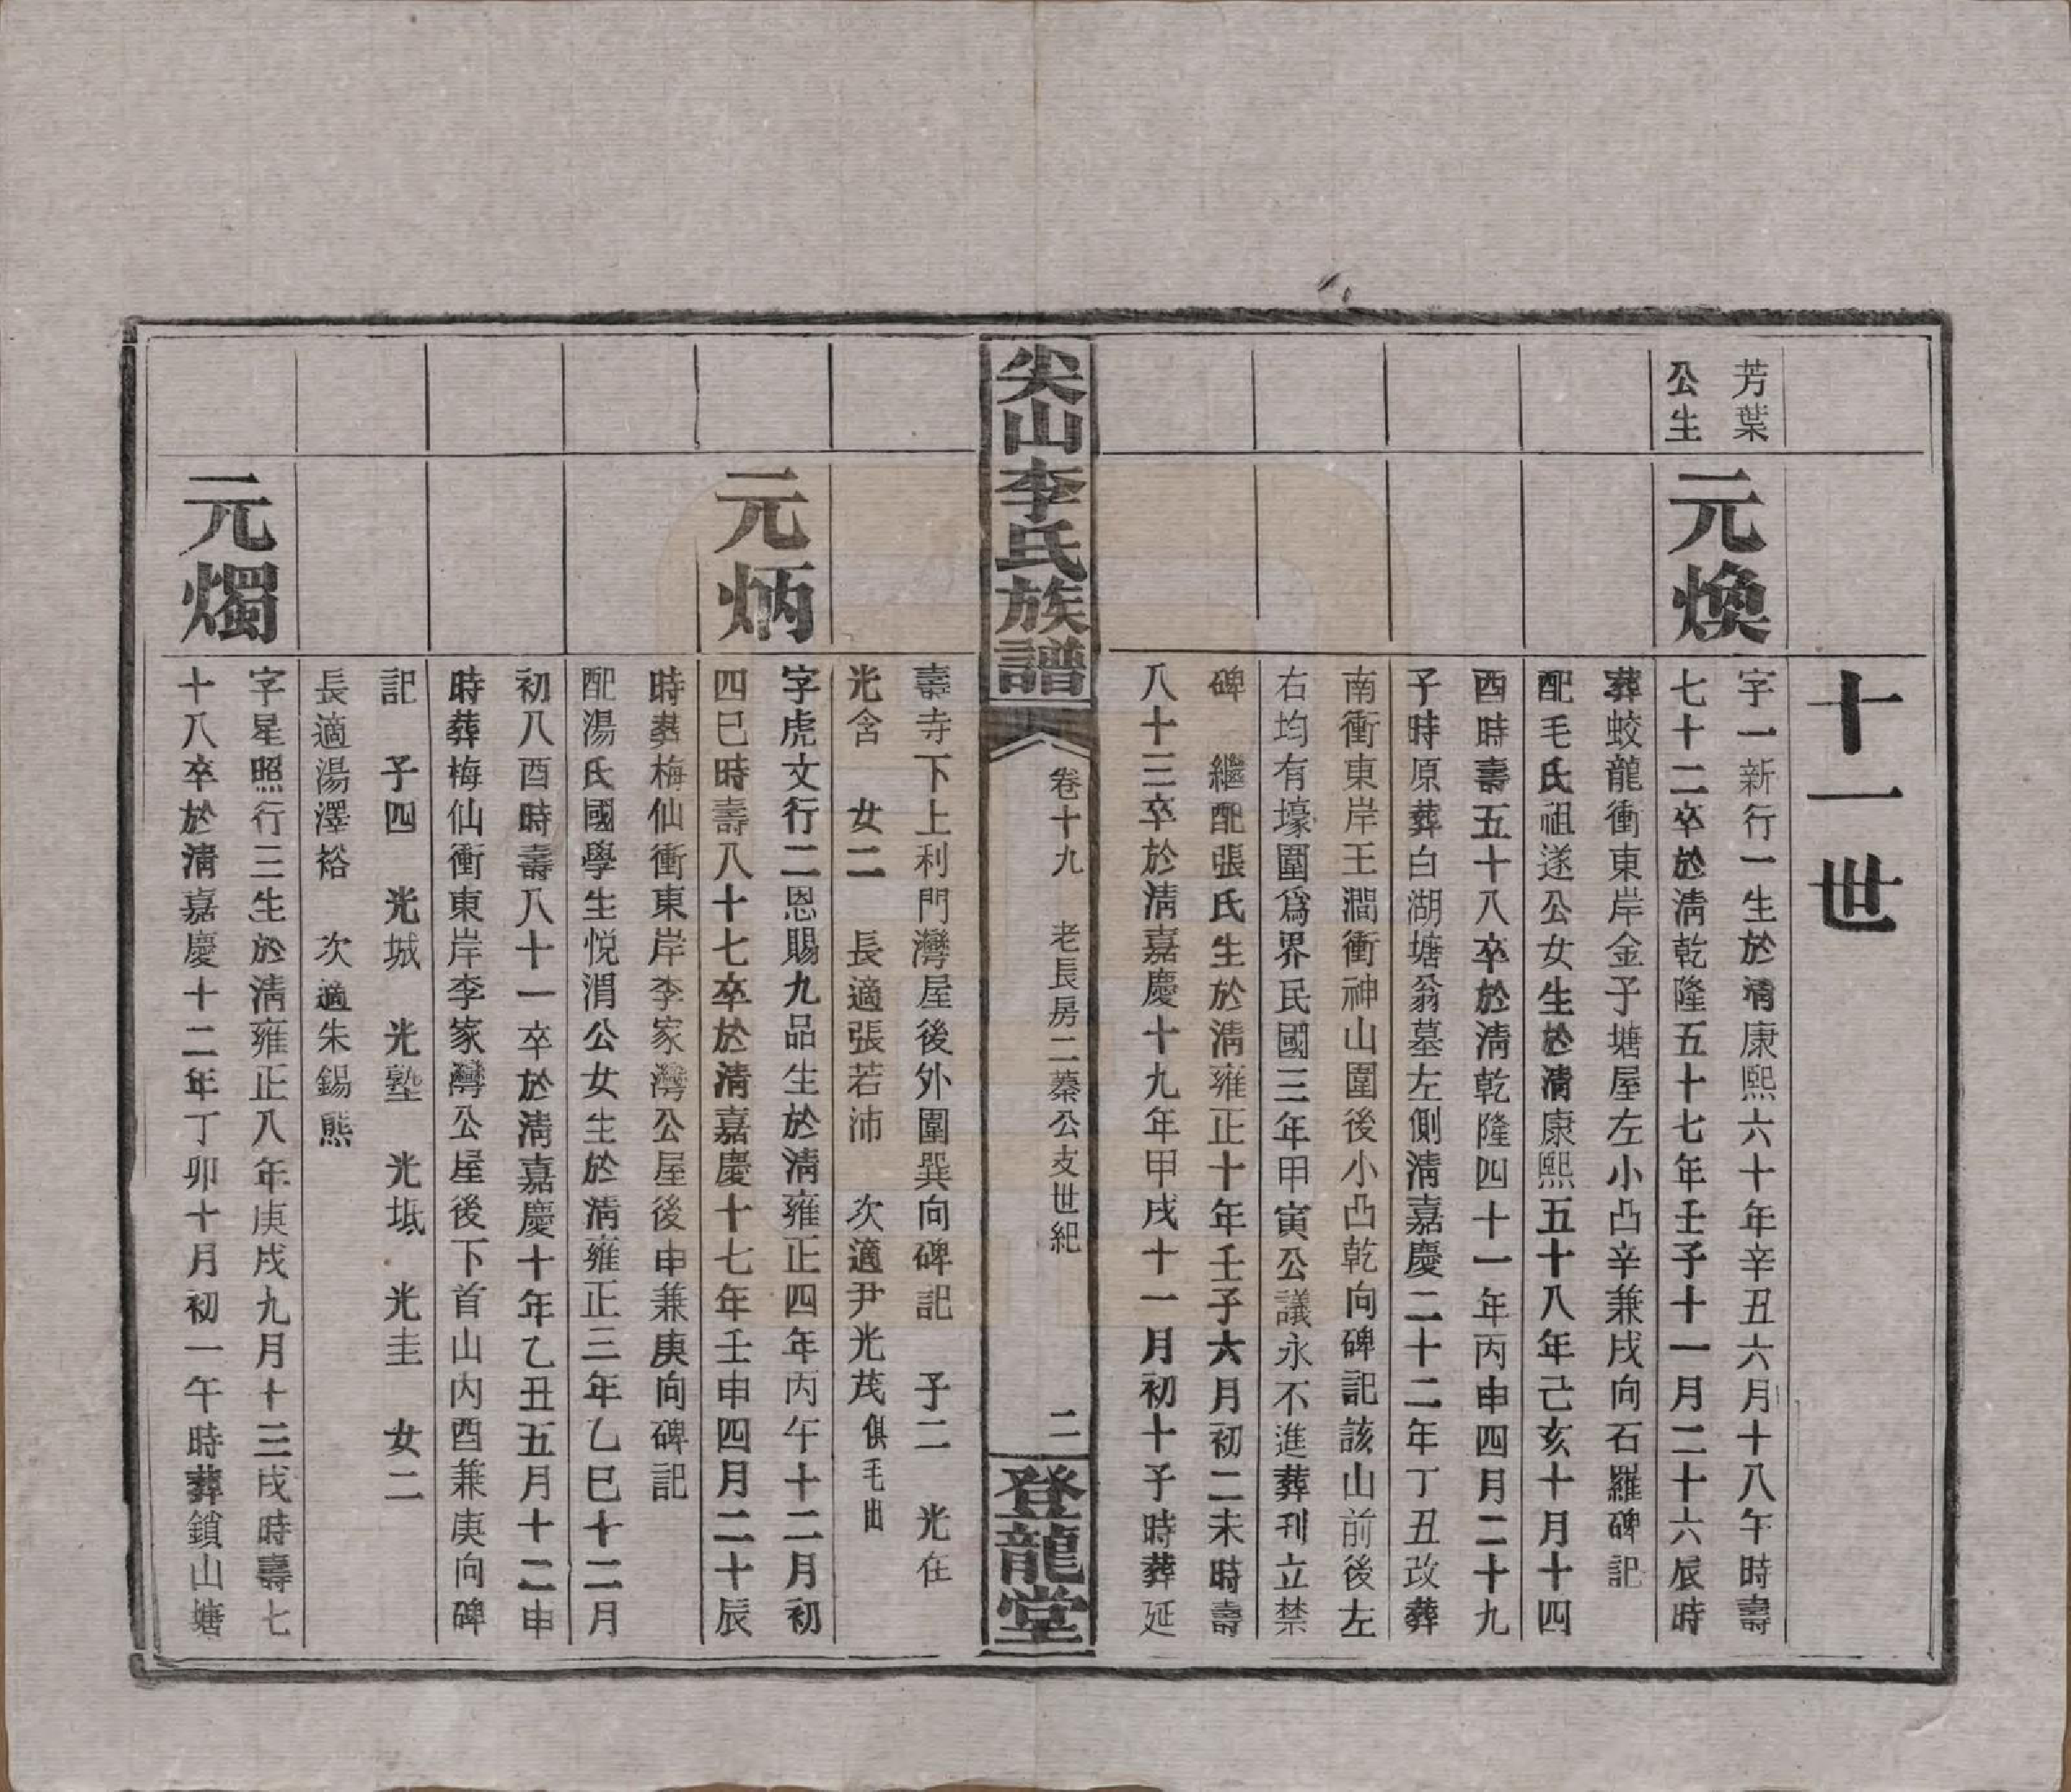 十一世
芳葉
公生
元煥
字一新行一生於清康熙六十年辛丑六月十八午時壽
七十二卒於清乾隆五十七年壬子十一月二十六辰時
葬蛟龍衝東岸金子塘屋左小凸辛兼戌向石羅碑記
配毛氏祖遂公女生於清康熙五十八年己亥十月十四
酉時壽五十八卒於清乾隆四十一年丙申四月二十九
子時原葬白湖塘翁墓左側清嘉慶二十二年丁丑改葬
南衝東岸王澗衝神山圍後小凸乾向碑記該山前後左
右均有壕圍爲界民國三年甲寅公議永不進葬刊立禁
碑　繼配張氏生於清雍正十年壬子六月初二未時壽
八十三卒於清嘉慶十九年甲戌十一月初十子時葬延
尖山李氏族譜
卷十九　老長房二蓁公支世紀
二
登龍堂
壽寺下上利門灣屋後外圍巽向碑記　子二　光在
光含　女二　長適張若沛　次適尹光茂俱毛出
元炳
字虎文行二恩賜九品生於清雍正四年丙午十二月初
四巳時壽八十七卒於清嘉慶十七年壬申四月二十辰
時葬梅仙衝東岸李家灣公屋後申兼庚向碑記
配湯氏國學生悅渭公女生於清雍正三年乙巳十二月
初八酉時壽八十一卒於清嘉慶十年乙丑五月十二申
時葬梅仙衝東岸李家灣公屋後下首山內酉兼庚向碑
記　子四　光城　光塾　光坻　光圭　女二
長適湯澤裕　次適朱錫熊
元燭
字星照行三生於清雍正八年庚戌九月十三戌時壽七
十八卒於清嘉慶十二年丁卯十月初一午時葬鎖山塘